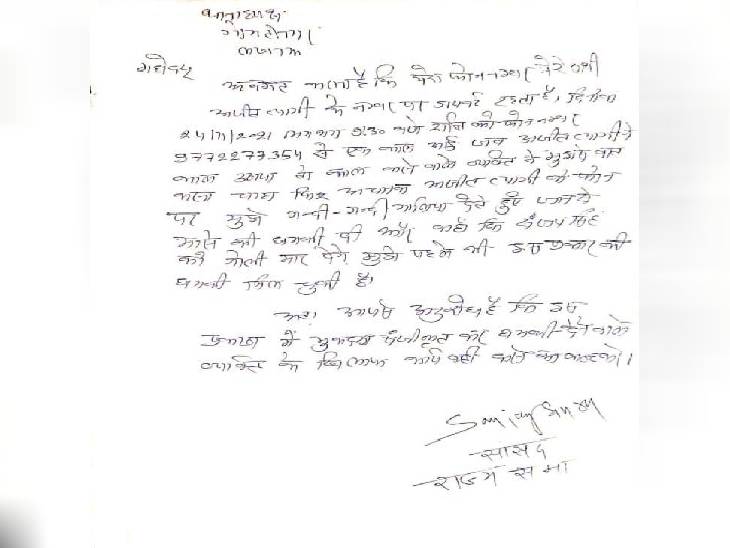 थानाध्यक्ष
गोमतीनगर
लखनऊ
महोदय
अवगत कराना है कि मेरा फोन नम्बर मेरे साथी
अजीत त्यागी के नम्बर पर डायवर्ट रहता है, दिनांक
24/11/2021 लगभग 9:30 बजे रात्रि को फोन नम्बर
9772277354 से एक काल आई जब अजीत त्यागी ने
काल उठाया तो काल करने वाले व्यक्ति ने मुझसे बात
करना चाहा फिर अचानक अजीत त्यागी के फोन
पर मुझे गन्दी-गन्दी गालियां देते हुए जान से
मारने की धमकी दी और कहा कि संजय सिंह
को गोली मार देंगे, मुझे पहले भी इस प्रकार की
धमकी मिल चुकी है।
अतः आपसे अनुरोध है कि इस
प्रकरण में मुकदमा पंजीकृत कर धमकी देने वाले
व्यक्ति के खिलाफ कार्यवाही करने का कष्ट करें।
Sanjay Singh
सांसद
राज्य सभा